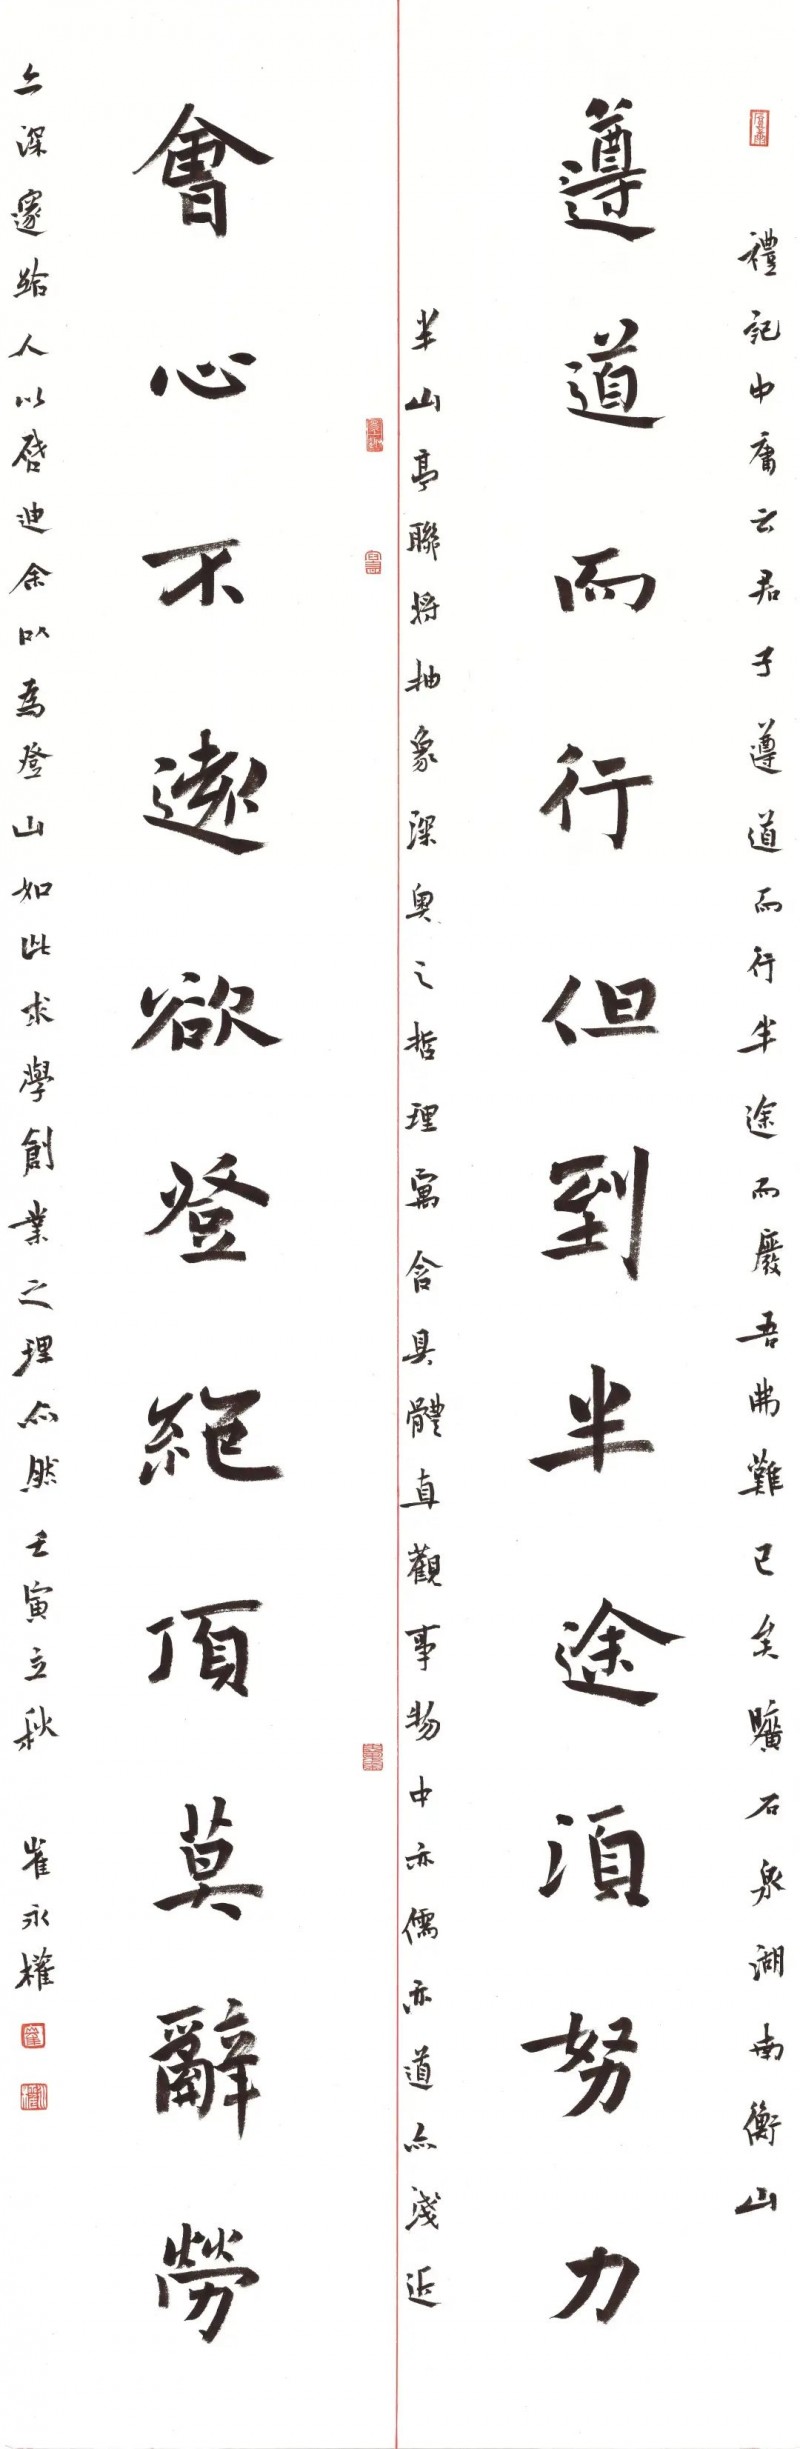 禮記中庸云君子遵道而行半途而廢吾弗難已矣曠石泉湖南衡山
遵道而行但到半途須努力
半山亭聯將抽象深奧之哲理寓含具體直觀事物中亦儒亦道亦淺近
會心不遠欲登絕頂莫辭勞
亦深邃給人以啓迪余以為登山如此求學創業之理亦然壬寅立秋 崔永權